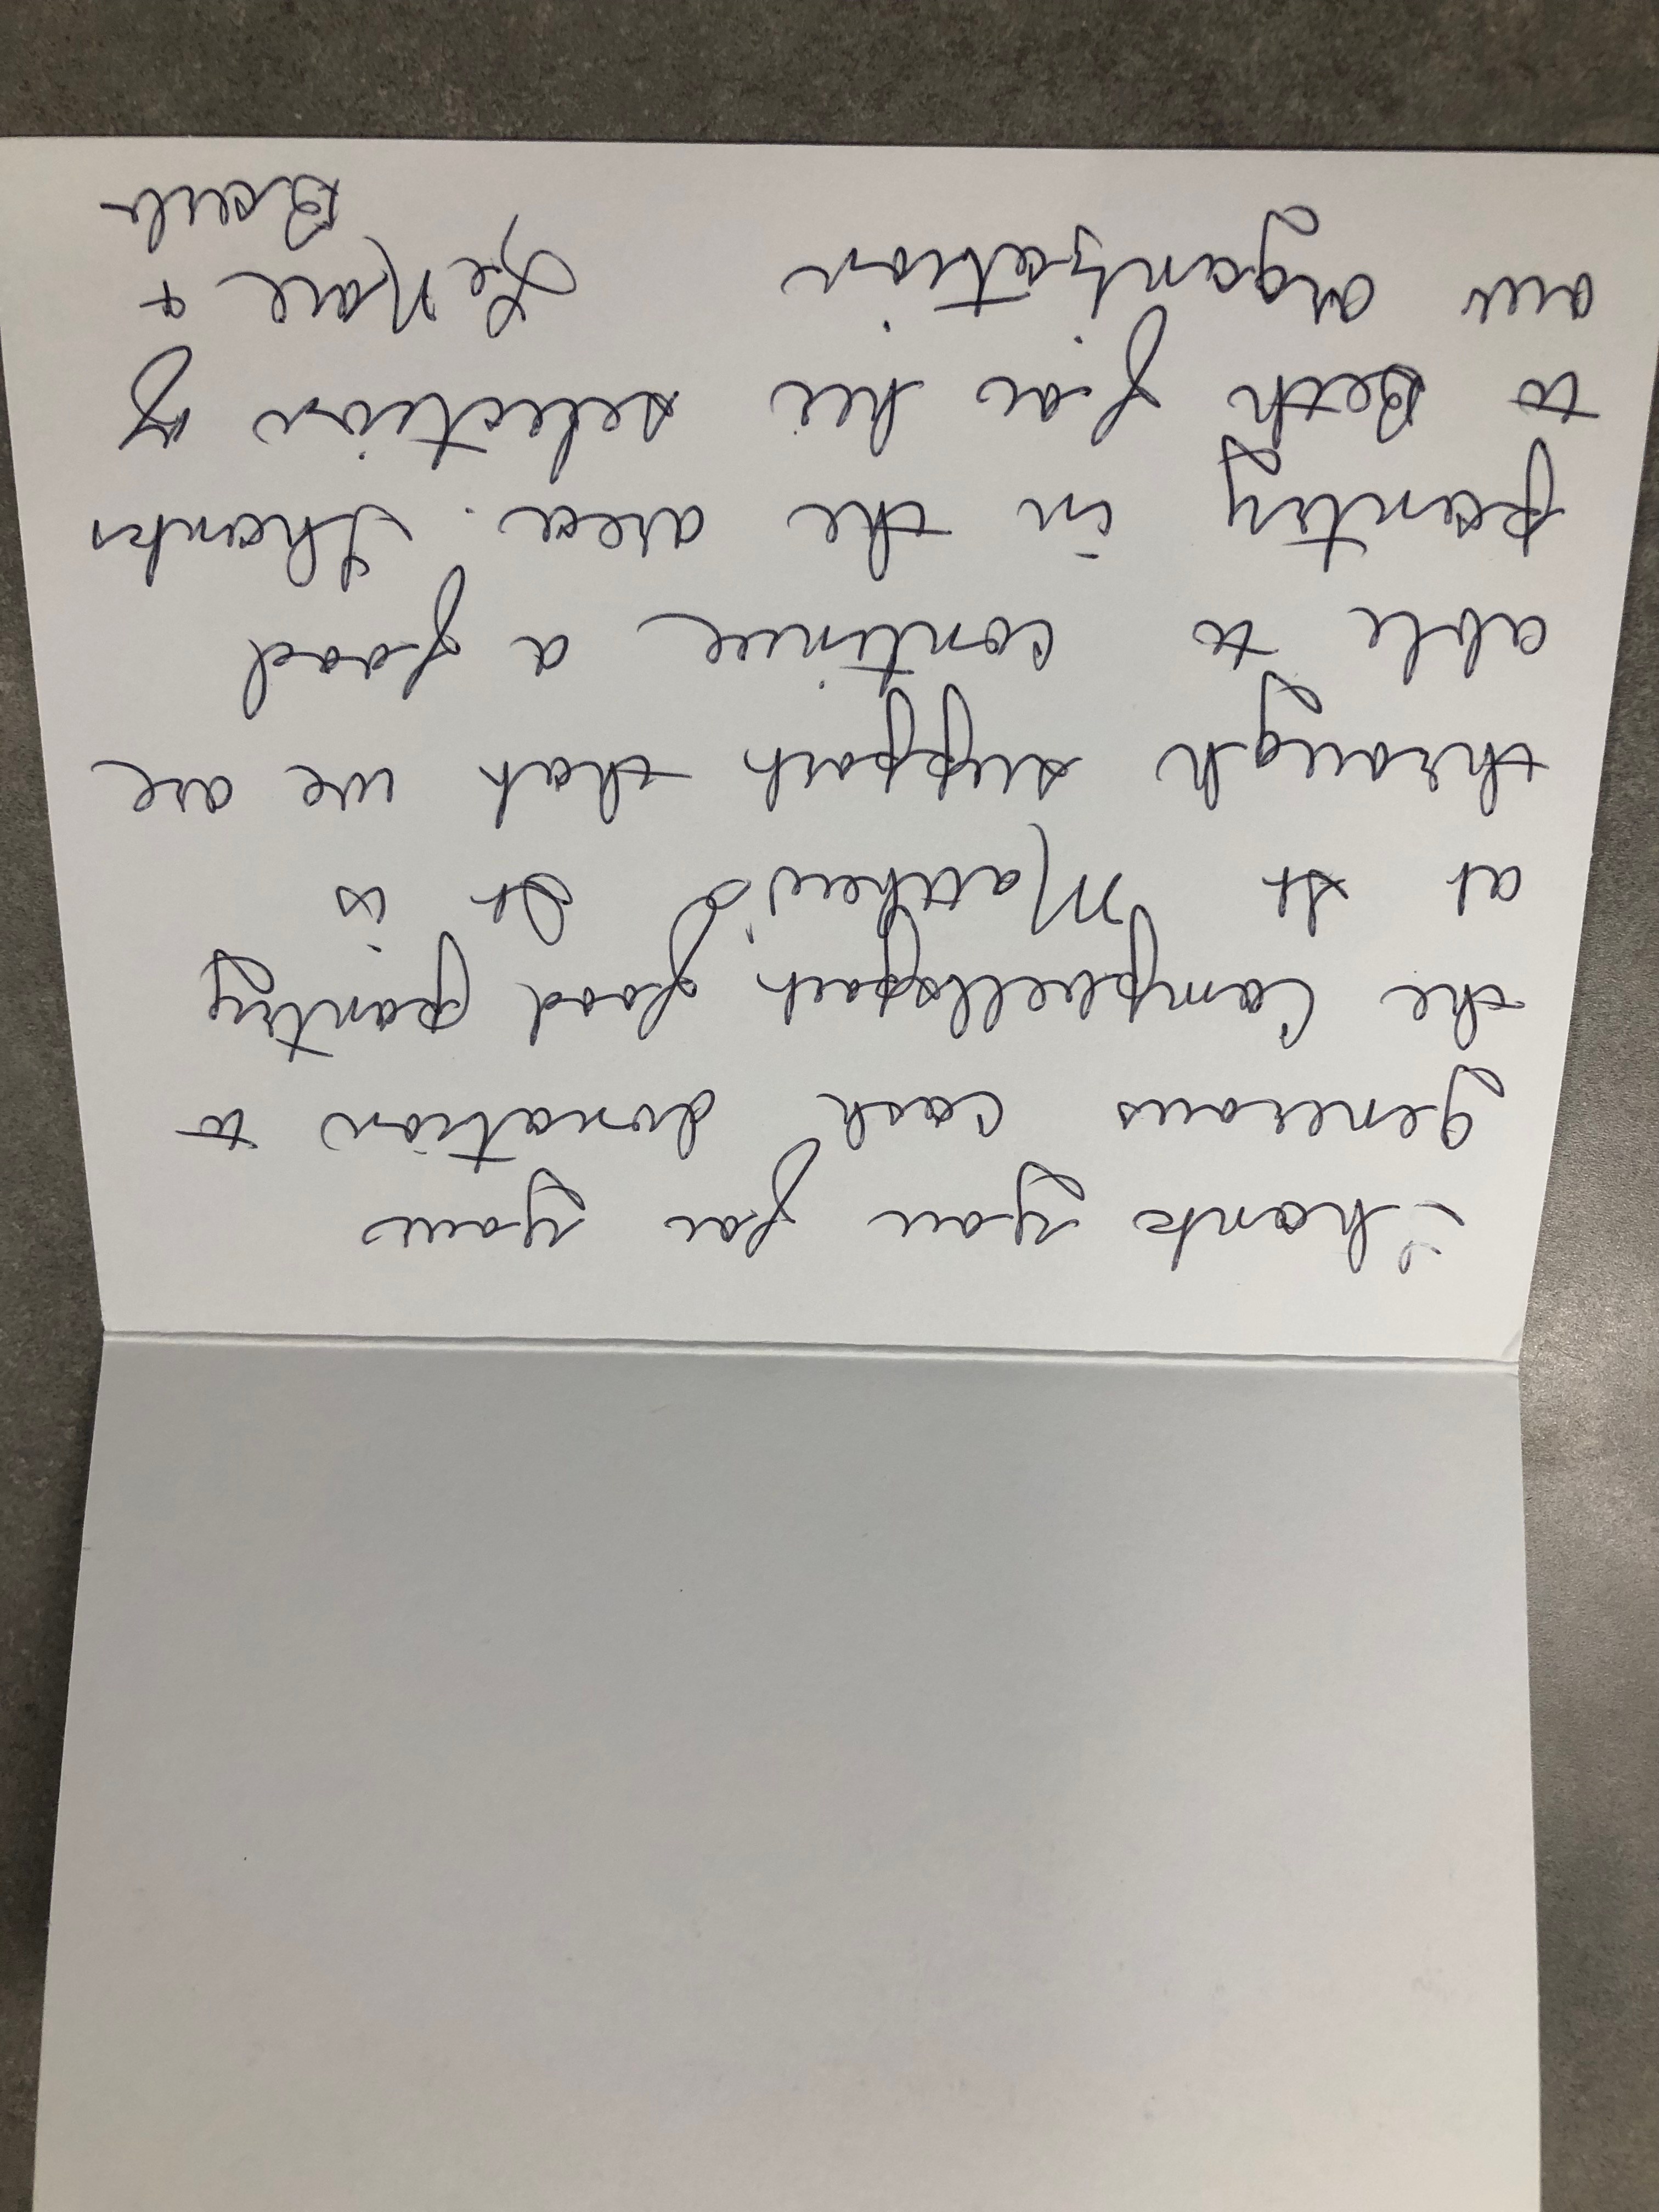 Thank you for your
generous cash donation to
the Campbellsport food pantry
at St Matthew's. It is
through support that we are
able to continue a food
pantry in the area. Thanks
to Beth for her selection of
our organization